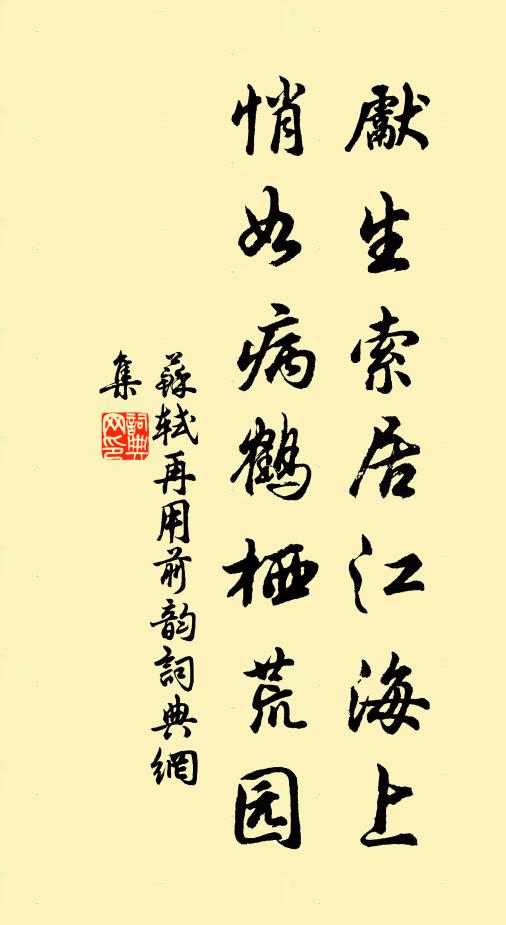 獻生索居江海上
悄如病鶴栖荒园
蘇軾再用前韵詞典網
集
詞典
网印